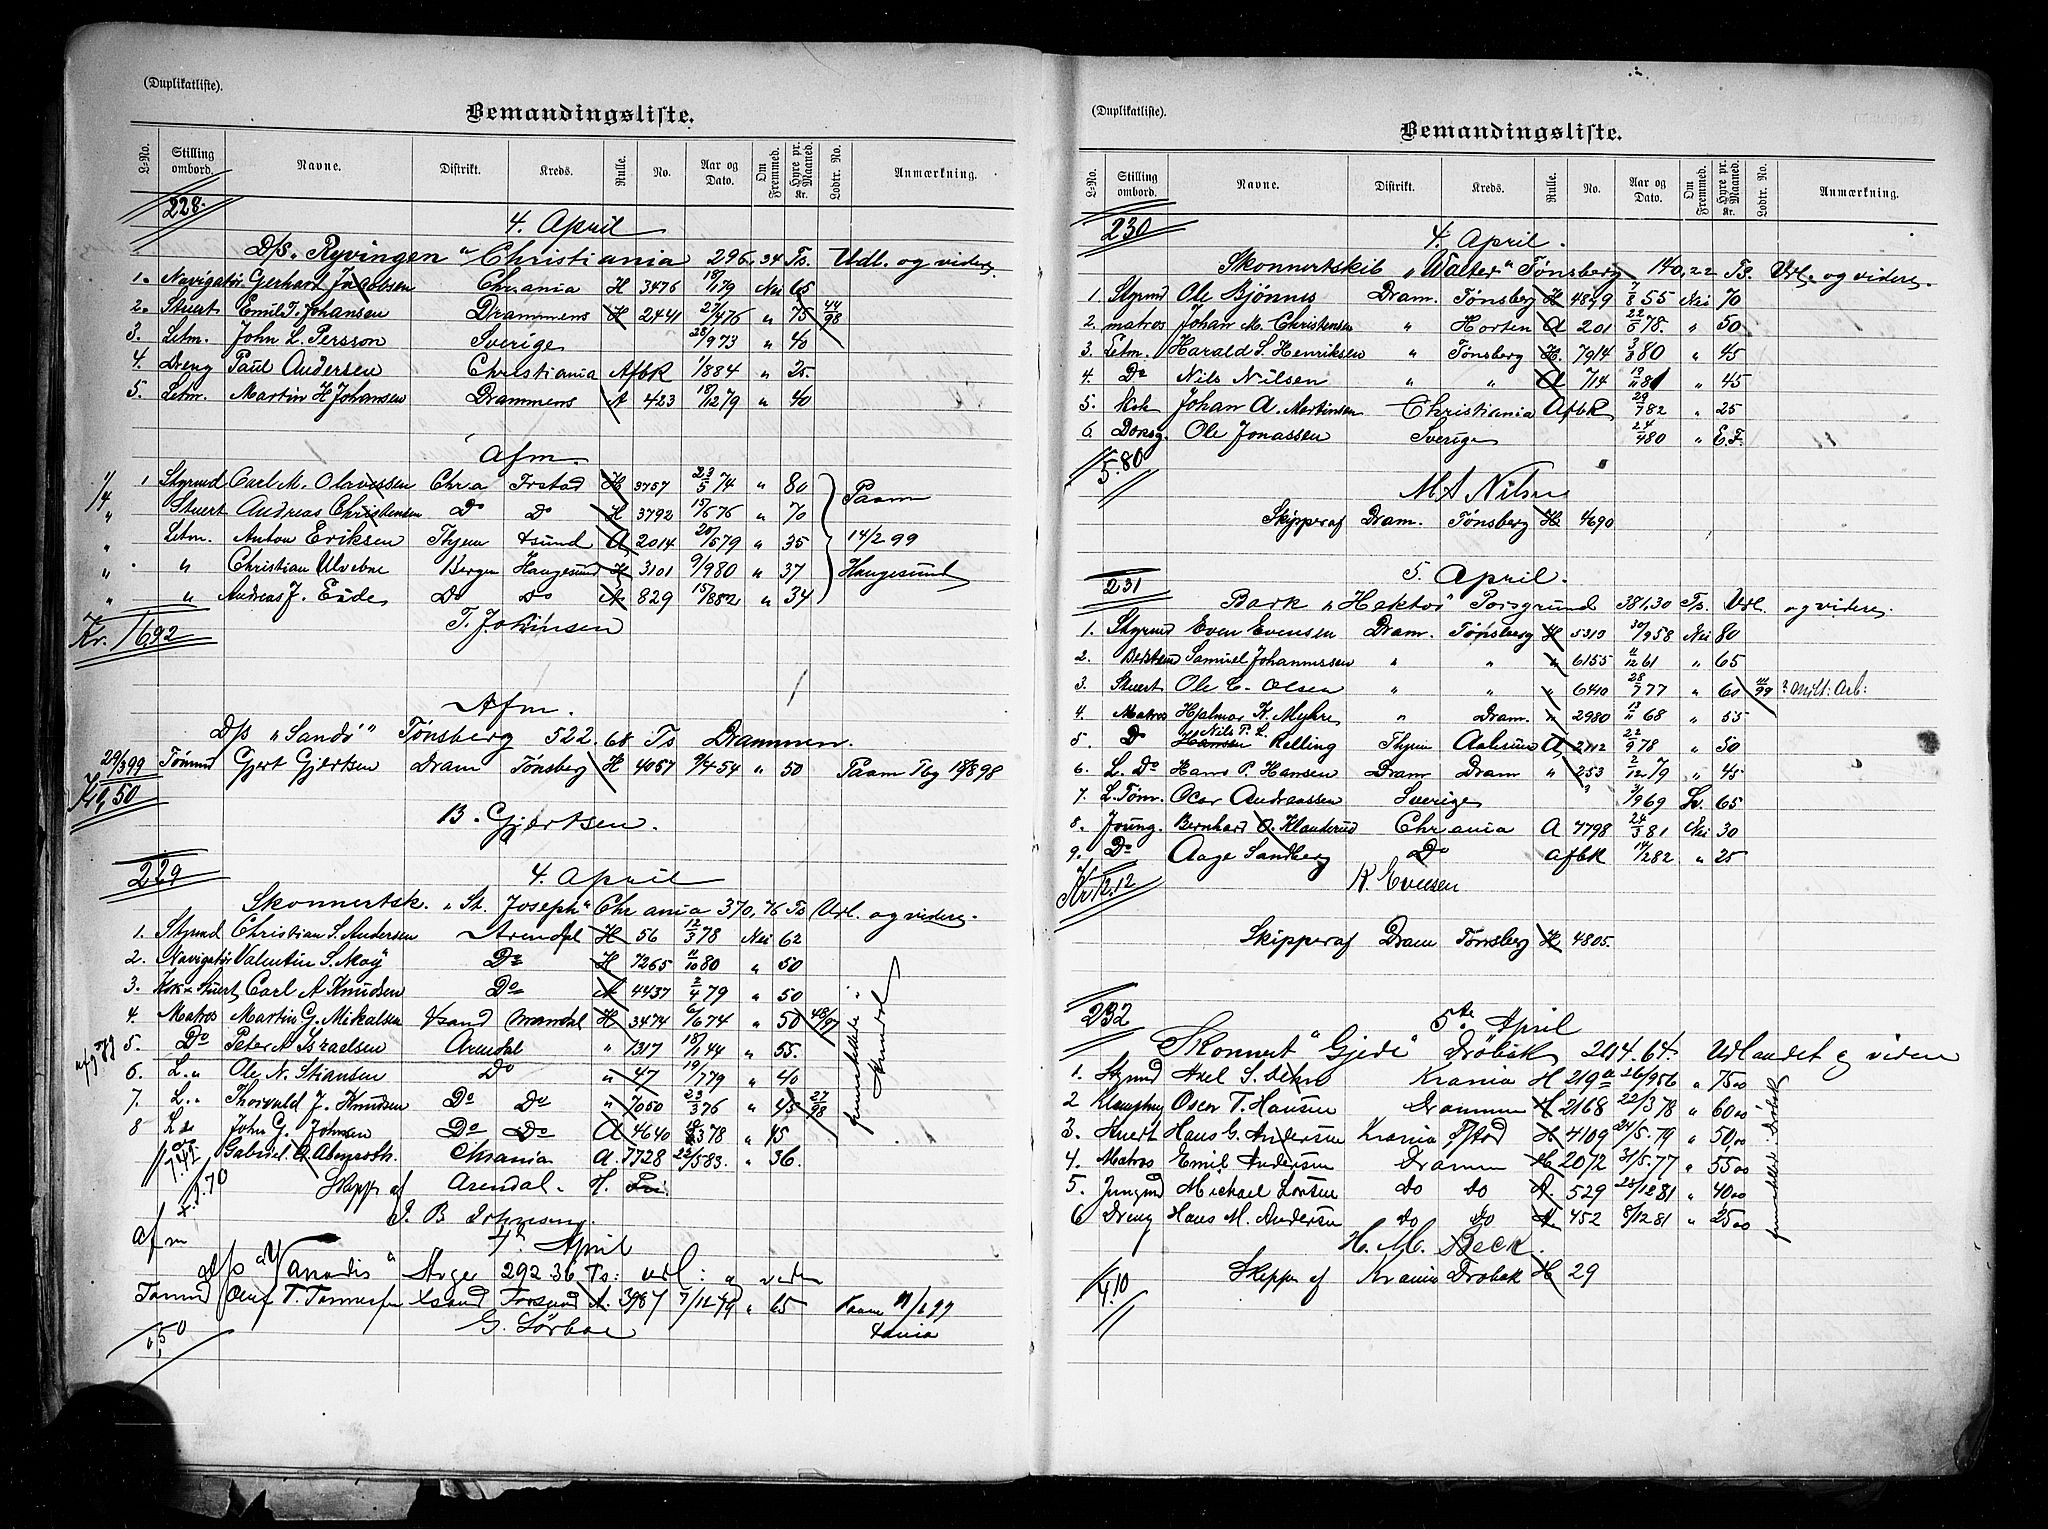 (Duplikatliste).
Bemandingsliste.
L-No. Stilling ombord. Navne. Distrikt. Kreds. Rulle. No. Aar og Dato. Om Fremmed. Hyre pr. Maaned. Kr. Lodtr. No. Anmærkning.
228.
4. April
D/S „Ryvingen“ Christiania 296.34 Ts. Udl. og videre.
1. Navigatør Gerhard Jacobsen Chrania H 3476 18/1 79 Nei 65
2. Stuert Emil T. Johansen Drammens H 2441 27/4 76 „ 75 44/98
3. Letm. John L. Persson Sverige 28/9 73 „ 40
4. Dreng Paul Andersen Christiania Afbk 1/8 84 „ 25.
5. Letm. Martin H Johansen Drammens A 423 18/12 79 „ 40
Afm.
1/4 1 Styrmd Carl M. Olavessen Chra Frstad H 3757 23/5 74 „ 80 Paam
„ Stuert Andreas Christensen Do Do H 3792 15/6 76 „ 70
„ Letm. Anton Eriksen Thjem Xsund A 2014 20/6 79 „ 35 14/2 99
„ „ Christian Ulvebne Bergen Haugesund H 3101 9/9 80 „ 37 Haugesund
„ „ Andreas J. Eide Do Do A 829 15/8 82 „ 34
T. Johnsen
Kr. 1692
Afm.
D/S „Sandö“ Tønsberg 522.68 Ts Drammen.
29/3 99 Tømmd Gjert Gjertsen Dram Tønsberg H 4067 9/4 54 „ 50 Paam Tbg 18/8 98
Kr 1,50
B. Gjertsen.
229
4. April
Skonnertsk. „St. Joseph“ Chrania 370,76 Ts Udl. og videre.
1. Styrmd Christian S. Andersen Arendal H 56 12/3 78 Nei 62
2. Navigatør Valentin S. Moy Do H 7265 11/10 80 „ 50
3. Kok & Stuert Carl A Knudsen Do A 4437 2/4 79 „ 50
4. Matros Martin G. Mikalsen Xsand Mandal H 3474 6/6 74 „ 50 48/97
5. Do Peter A Israelsen Arendal „ 1317 18/1 44 „ 55.
6. L. „ Ole N. Stiansen Do „ 47 19/7 79 „ 40
7. L. „ Thorvald J. Knudsen Do Do „ 7050 23/3 76 „ 45 27/98
8 L do John G. Johnsen Do Do A 4640 3 78 „ 45
Gabriel A Abmyroth. Chrania A. 7728 22/5 83. „ 36.
Skipp af Arendal. H.
5.70
J. B Johnsen
afm 4de April
D/S „Vanadis“ 292 36 Ts: udl: og videre
Tømmd Oluf T. Tønnesen Xsand Farsund A. 3987 7/12 79 „ 65 Paam
G. Sørboe
„50
(Duplikatliste).
Bemandingsliste.
L-No. Stilling ombord. Navne. Distrikt. Kreds. Rulle. No. Aar og Dato. Om Fremmed. Hyre pr. Maaned. Kr. Lodtr. No. Anmærkning.
230
4. April.
Skonnertskib „Walter“ Tønsberg 140,22 Ts. Udl. og videre.
1 Styrmd Ole Bjönnes Dram. Tønsberg H 4899 7/8 55 Nei 70
2. matros Johan M. Christensen „ Horten A 201 22/5 78. „ 50
3. Letm. Harald S. Henriksen „ Tønsberg H. 7914 3/3 80 „ 45
4. Do Nils Nilsen „ „ A 714 19/11 81 „ 45
5. Kok Johan A. Martinsen Christiania Afbk 29/7 82 „ 25
6. Dæksg. Ole Jonassen Sverige 24/4 80 „ E.F.
5.80
M A Nilsen
Skipper af Dram. Tønsberg H. 4690
231
5. April.
Bark „Hektor“ Porsgrund 381,30 Ts. Udl. og videre.
1. Styrmd Even Evensen Dram. Tønsberg H 5310 30/9 58 Nei 80
2. Bestmd Samuel Johannessen „ „ „ 6155 11/12 61 „ 65
3. Stuert Ole C. Olsen „ „ „ 6410 28/7 77 „ 60 111/99 ? Milt: Arb:
4. Matros Hjalmar K. Myhre „ Dram. „ 2980 13/11 68 „ 55
5. Do Nils P. L. Hansen Relling Thjem Aalesund A 2712 22/9 78 „ 50
6. L. Do Hans P. Hansen Dram Dram „ 253 2/12 79 „ 45
7. L. Tøm. Oscar Andreassen Sverige 3/9 69 Sv. 65
8. Joung. Bernhard O. Klanderud Chrania A 7798 24/3 81 Nei 30
9. Do Aage Sandberg Do Afbk 14/2 82 „ 25
K. Evensen
Kr 12.12
Skipper af Dram Tønsberg H 4805.
232
5te April
Skonnert „Gjedi“ Drøbak 204.64. Udlandet og videre
1. Styrmd Axel S. Dehro Krania H 219a 26/9 56 „ 75 00
2 Oscar T. Hansen Drammen H 2168 22/3 78 „ 60 00
3. Stuert Hans G. Andersen Krania Fstad H 4109 24/5. 79 „ 50,00
4. Matros Emil Andersen Dramm H 2072 31/5. 77 „ 55 00
5. Jungmd Michael Larsen do do A. 529 28/12 81 „ 40 00
6 Dreng Hans M. Andersen do do A 452 8/12 81 „ 25 00
H. M. Beck.
Skipper af Krania Drøbak H 29
4.10